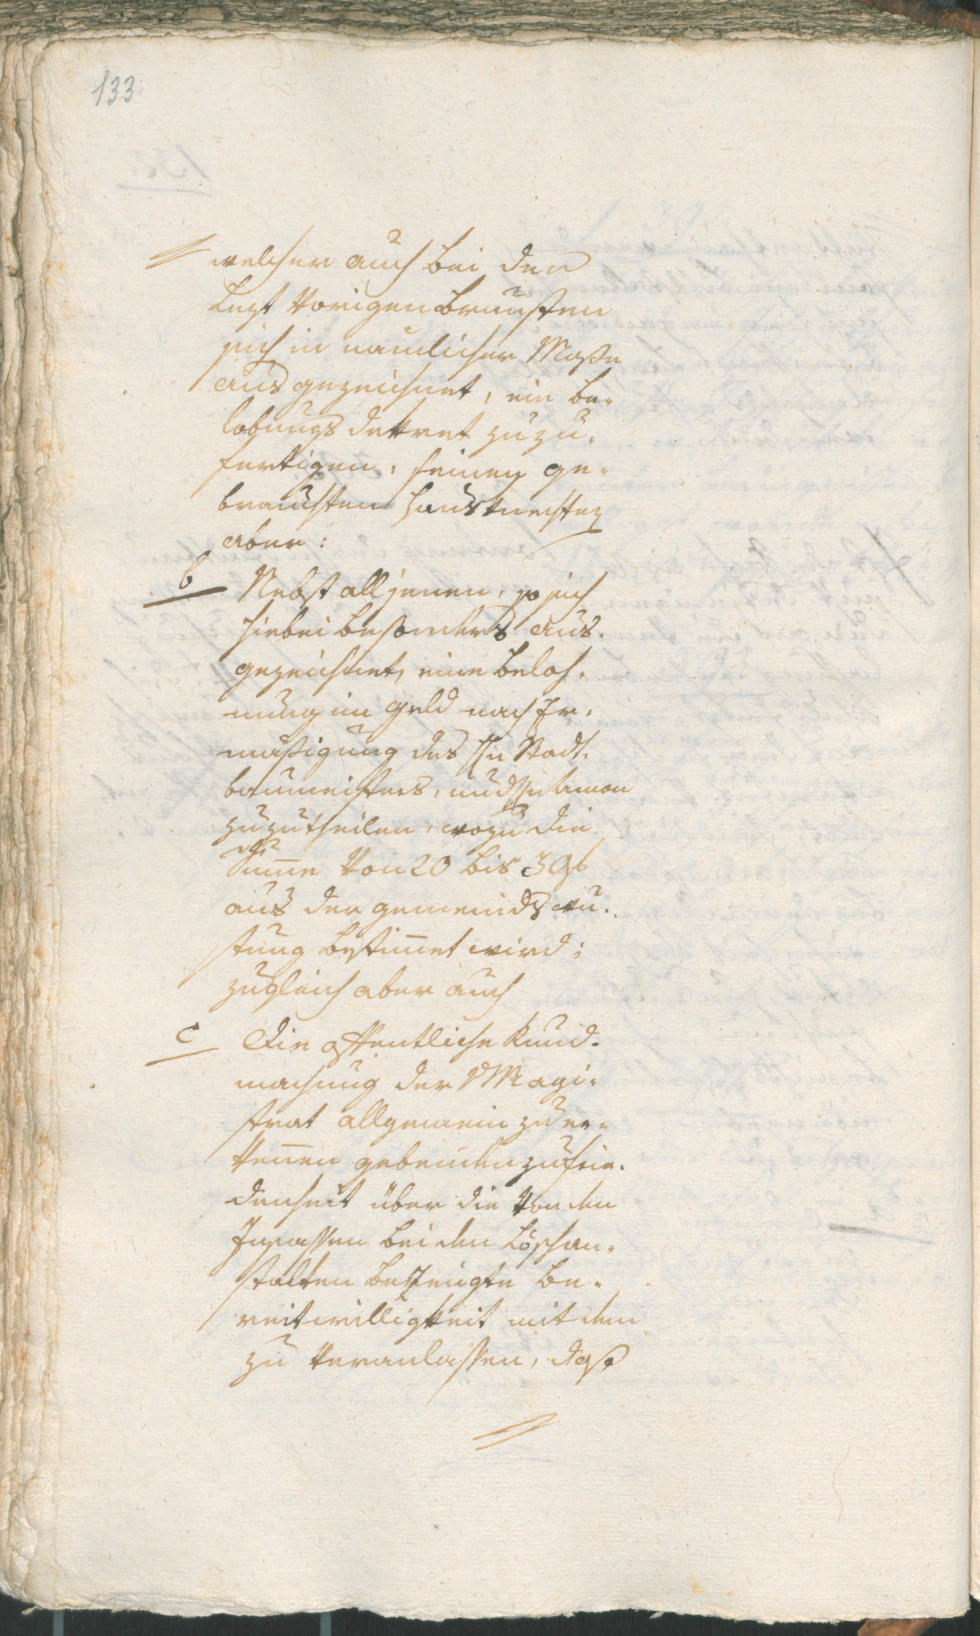 133.
welcher auch bei den
lezt vorigen brunsten
sich in namlicher Maße
ausgezeichnet, ein be-
lobungs dekret zuzu-
fertigen, seinen ge-
brauchten Hausknechten
aber:
b Nebst all jenen, so sich
hiebei besonders aus-
gezeichnet, eine beloh-
nung im Geld nach Er-
mäßigung des H: Stadt-
baumeisters, und
zuzutheilen, wozu die
Summe von 20 bis 30 f
aus der gemeinds
bestimmet wird;
zugleich aber auch
c Die offentliche Kund-
machung der Magi-
strat allgemein zu er-
kennen gebenden zufrie-
denheit über die von den
Insassen bei den Löschan-
stalten bezeugte be-
reitwilligkeit mit dem
zu veranlassen, daß